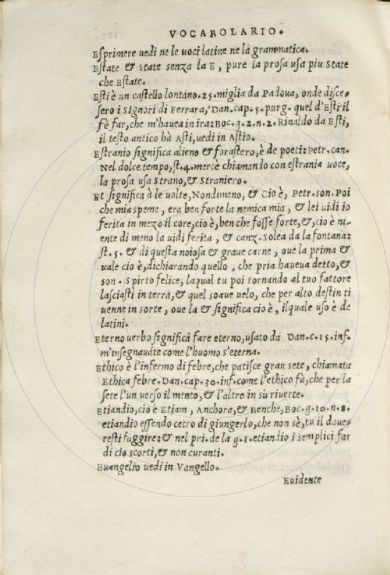 VOCABOLARIO.
Esprimere uedi ne le uoci latine ne la grammatica.
Estate & state senza la E, pure la prosa usa piu state
che Estate.
Esti è un castello lontano .25. miglia da Padoua, onde disce-
sero i signori di Ferrara, Dan. cap. 5. purg. quel d'Esti il
fè far, che m'haueua in ira: Boc. g. 2. n. 2. Rinaldo da Esti,
il testo antico hà Asti, uedi in Astio.
Estranio significa alieno & forastero, è de poeti: Petr. can.
Nel dolce tempo, st. 4. mercè chiamando con estrania uoce,
la prosa usa Strano, & Straniero.
Et significa à le uolte, Nondimeno, & Cio è, Petr. son. Poi
che mia speme, era ben forte la nemica mia, & lei uidi io
ferita in mezo il core, cio è, ben che fosse forte, &, cio è nie
ente di meno la uidi ferita, & canz. Solea da la fontana:
st. 5. & di questa noiosa & graue carne, oue la prima &
uale cio è, dichiarando quello, che pria haueua detto, &
son. Spirto felice, la qual tu poi tornando al tuo fattore
lasciasti in terra, & quel soaue uelo, che per alto destin ti
uenne in sorte, oue la & significa cio è, il quale uso è de
latini.
Eterno uerbo significa fare eterno, usato da Dan. c. 15. inf.
m'insegnauate come l'huomo s'eterna.
Ethico è l'infermo di febre, che patisce gran sete, chiamata
Ethica febre. Dan. cap. 30. inf. come l'ethico fà, che per la
sete l'un uerso il mento, & l'altro in sù riuerte.
Etiandio, cio è Etiam, Anchora, & Benche, Boc. g. 10. n. 8.
etiandio essendo certo di giungerlo, che non sè, tu il doue-
resti fuggire: & nel pri. de la g. 1. etiandio i semplici far
di cio scorti, & non curanti.
Euangelio uedi in Vangello.
Euidente